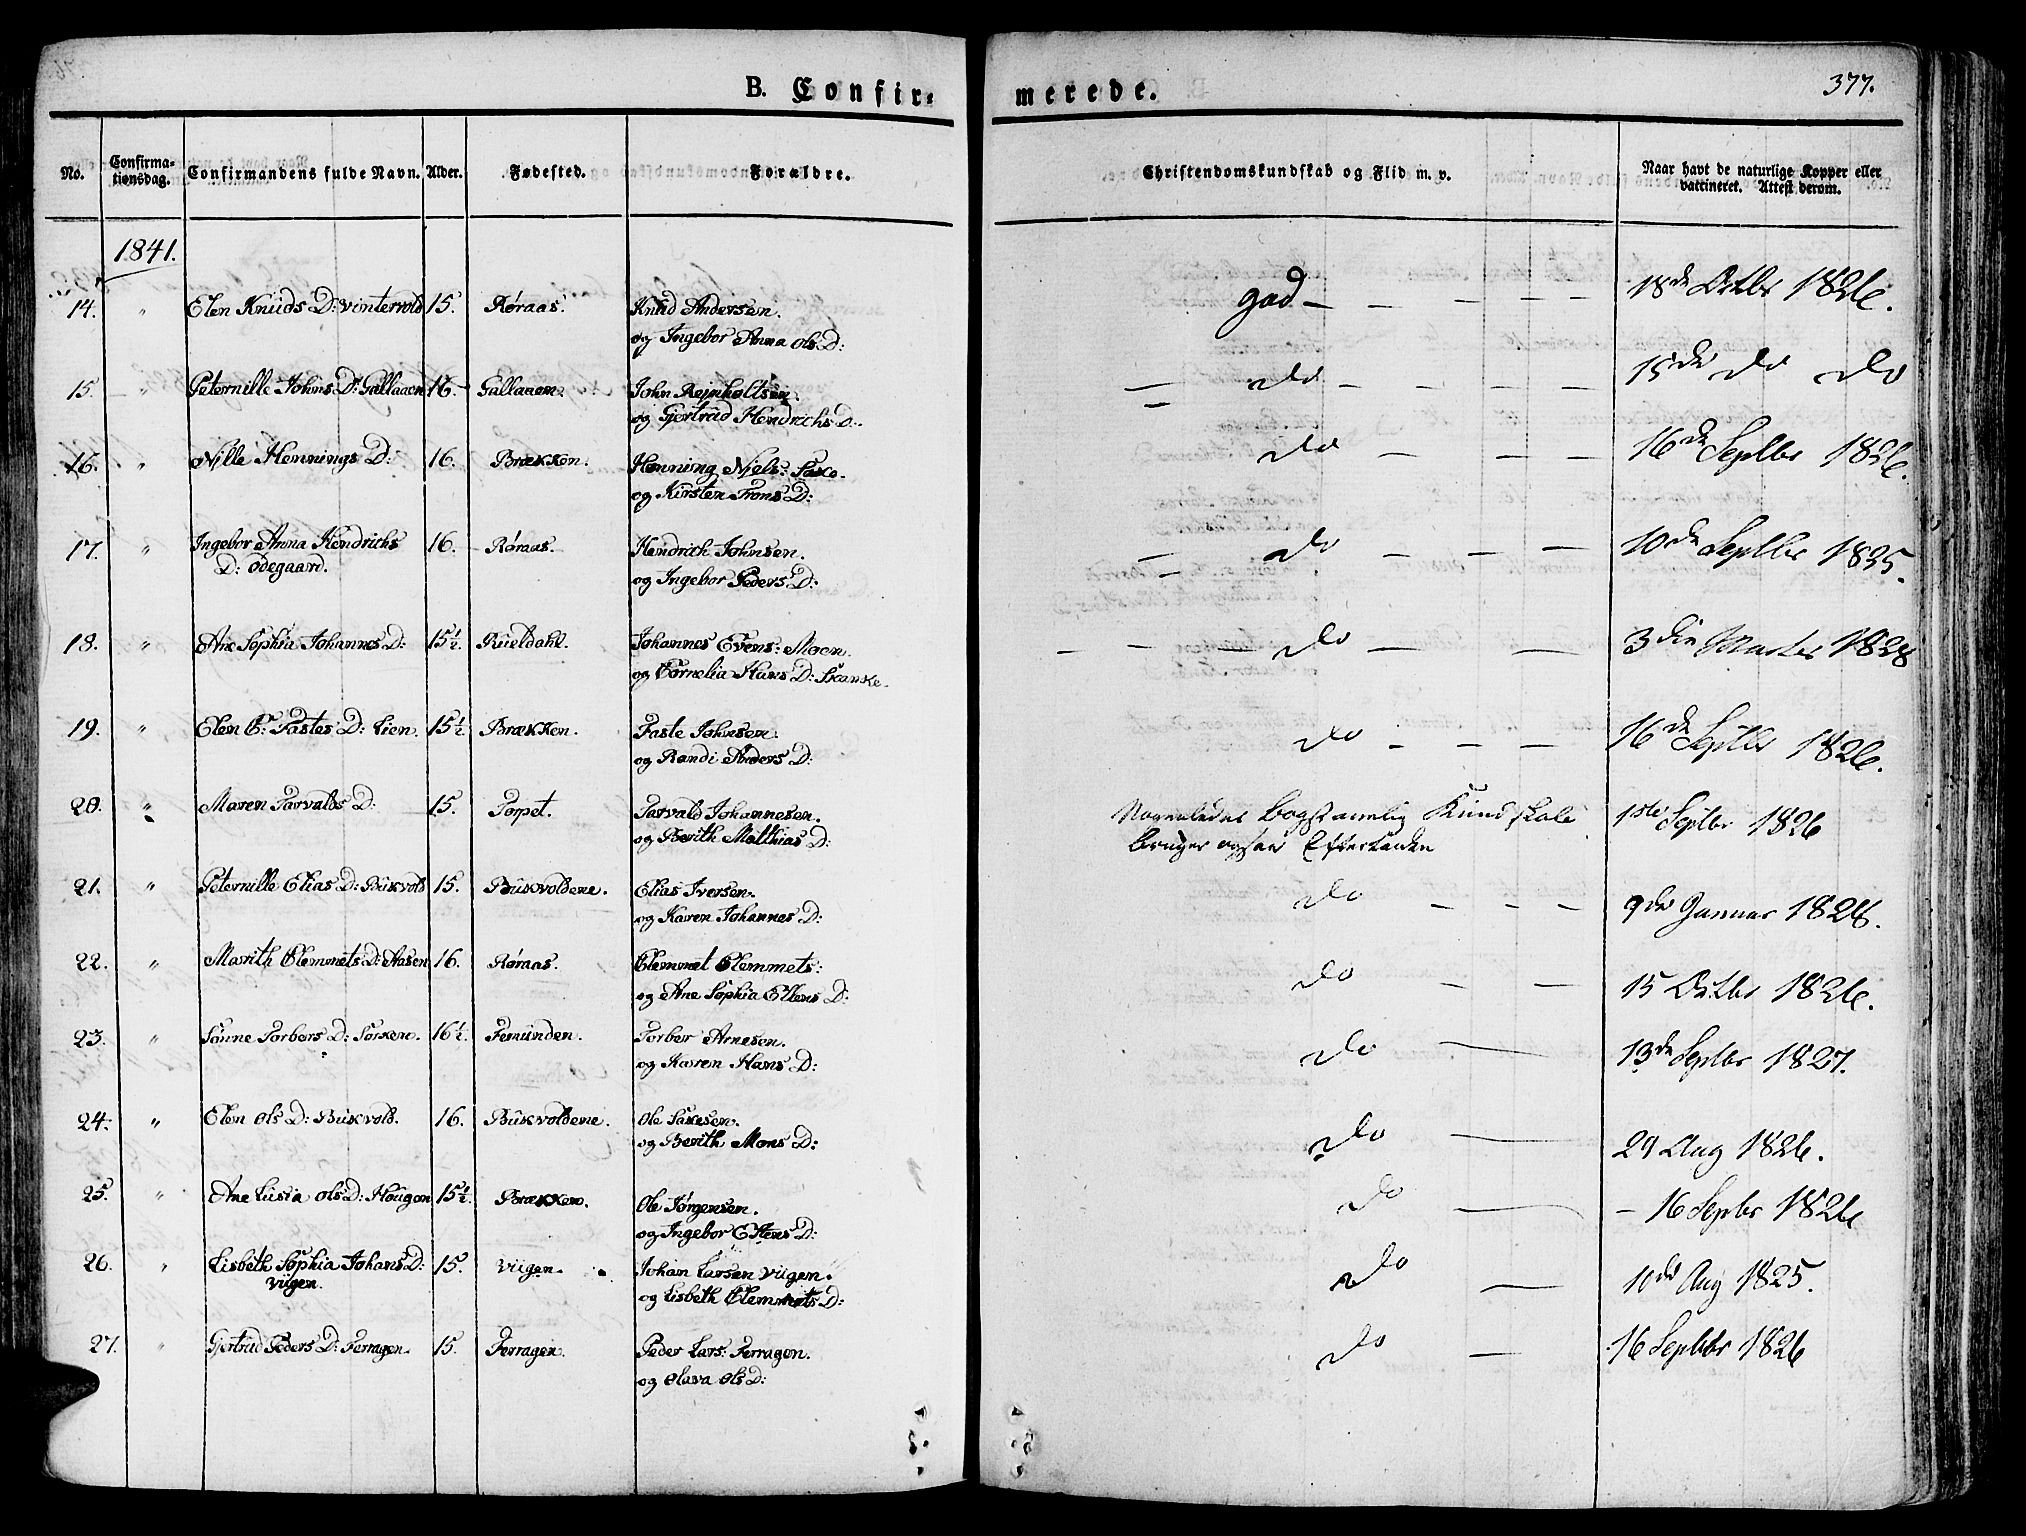 B. Confir-
merede.
377.
No. Confirma-tionsdag. Confirmandens fulde Navn. Alder. Fødested. Forældre. Christendomskundskab og Flid m. v. Naar havt de naturlige Kopper eller vaccineret. Attest derom.
1841.
14. " Elen Knuds D: Vintervold 15. Røraas. Knud Andersen. god — — — — — 18de Octbr 1826.
og Ingebor Anna Ols D:
15. " Peternille Johns D: Gullaaen 16. Gullaaen. John Rejnholtsen. — do — — — — 15de do do
og Gjertrud Hendrichs D.
16. " Nille Hennings D: 16. Brækken. Henning Niels: Saxe. do — — — 16de Septbr 1826.
og Kirsten Trons D:
17. " Ingebor Anna Hendrichs 16. Røraas. Hendrich Johnsen. — do — — — 10de Septbr 1835.
D: Ødegaard. og Ingebor Peders D:
18. " Ane Sophia Johannes D: 15½. Rueldahl. Johannes Evens: Moen. — — — do — — 3die 1838
og Cornelia Hans D: Skanke.
19. " Elen E: Pastes D: Lien. 15½ Brækken. Paste Johnsen. do — — — 16de Septbr 1826.
og Randi Anders D:
20. " Maren Torvalds D: 15. Torpet. Torvald Johannesen. Kundskab 1ste Septbr 1826
og Berith Matthias D: bruger ogsaa Eftertanke
21. " Peternille Elias D: Bukvold 15. Bukvoldene. Elias Iversen. do — — — 9de Januar 1826.
og Karen Johannes D:
22. " Marith Clemmets D: Aasen 16. Røraas. Clemmet Clemmets: do — — 15 Octbr 1826.
og Ane Sophia Ellens D:
23. " Sønne Torbers D: Sørken. 16½. Femunden. Torber Arnesen. do — 13de Septbr 1827.
og Karen Hans D:
24. " Elen Ols D: Bukvold. 16. Bukvoldene. Ole Saxesen. do — 29 Aug 1826.
og Berith Mons D:
25. " Ane Lusia Ols D: Hougen 15½ Brækken. Ole Jørgensen. do — — 16 Septbr 1826
og Ingebor Estens D:
26. " Lisbeth Sophia Johans D: 15. Viigen. Johan Larsen Viigen. do — 10de Aug 1825.
Viigen. og Lisbeth Clemmets D:
27. " Gjertrud Peders D: Ferragen. 15. Ferragen. Peder Lars: Ferragen. do — 16 Septbr 1826
og Olava Ols D: